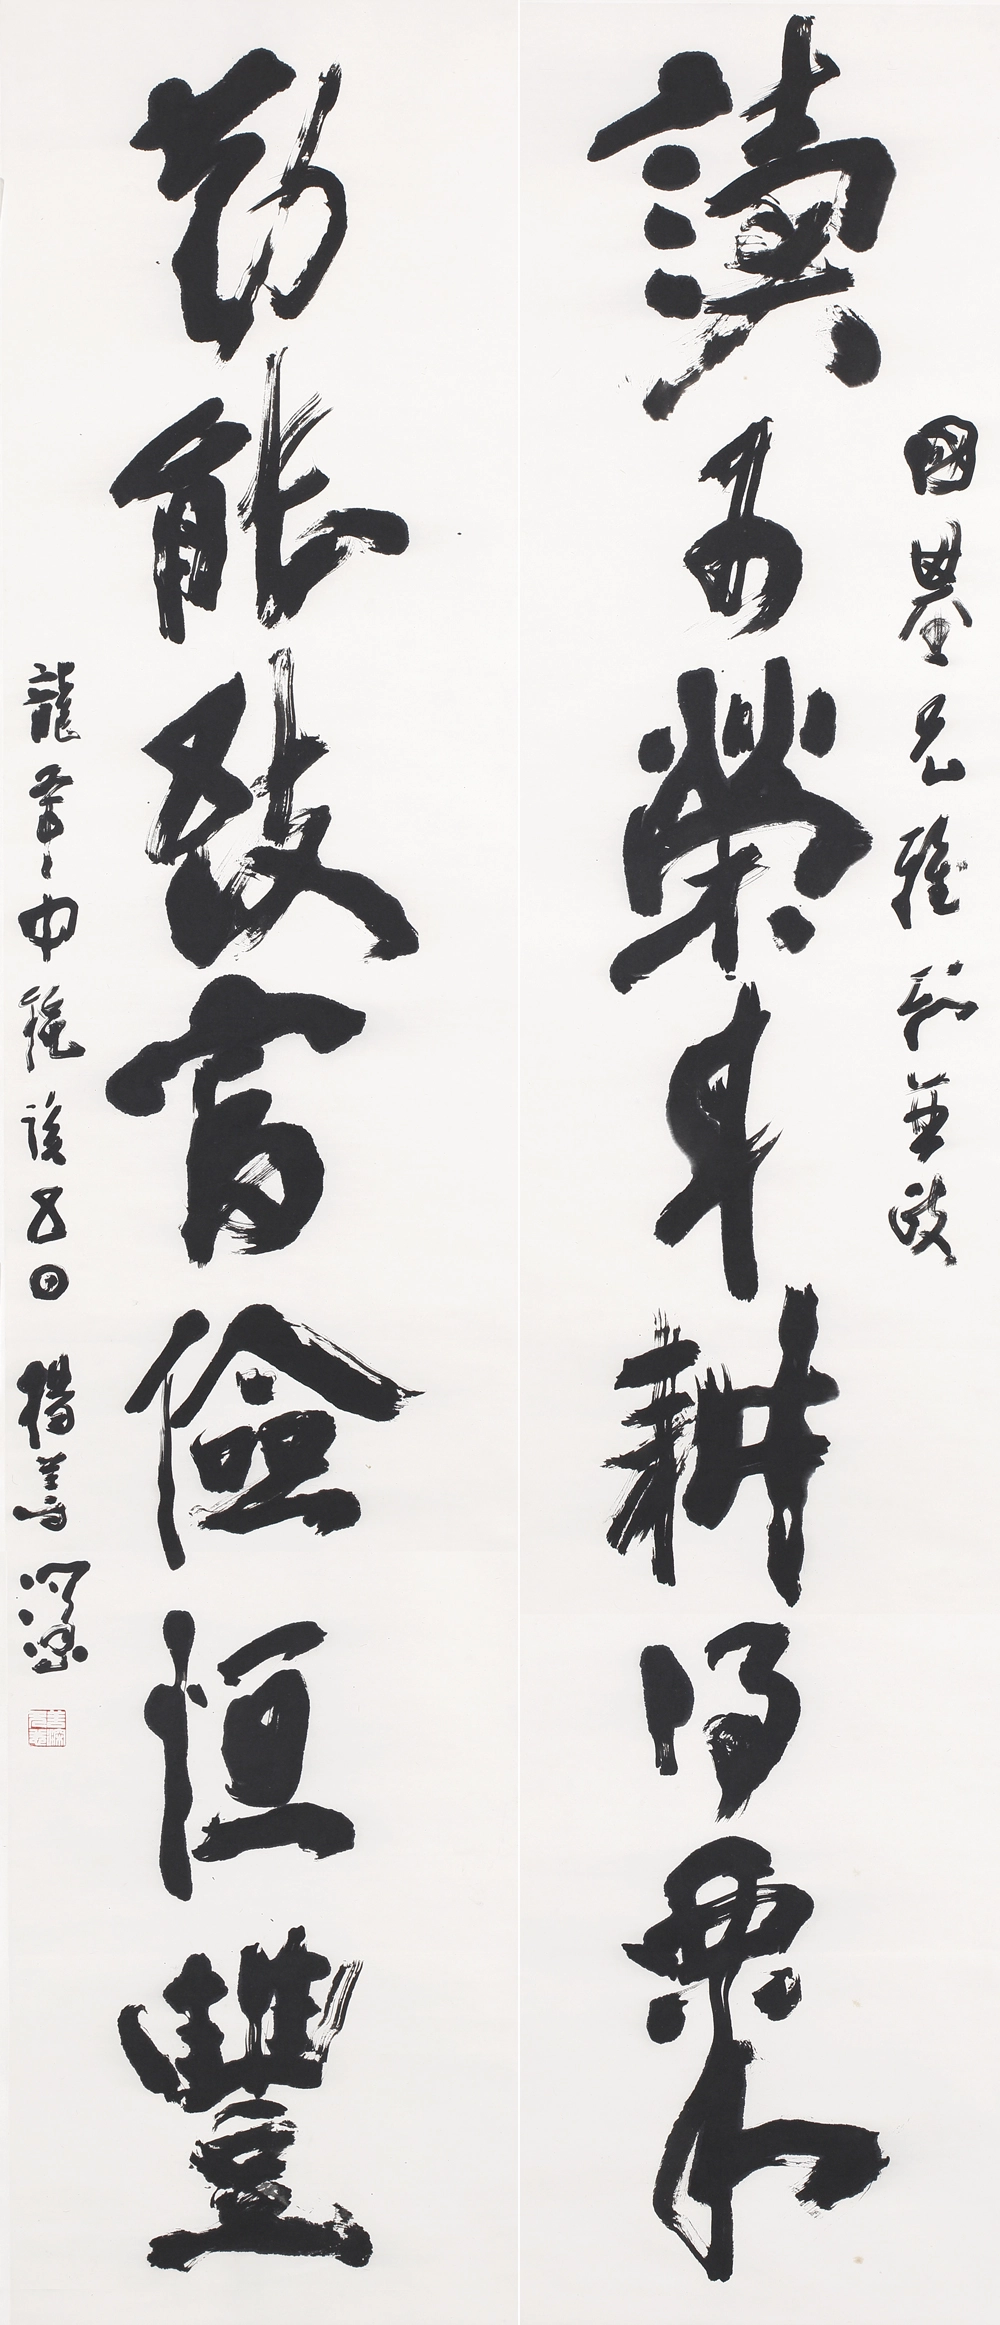 國基兄雅 並政
讀可榮身耕得粟
勤能致富儉恒豐
龍年中秋後五日 楊善深